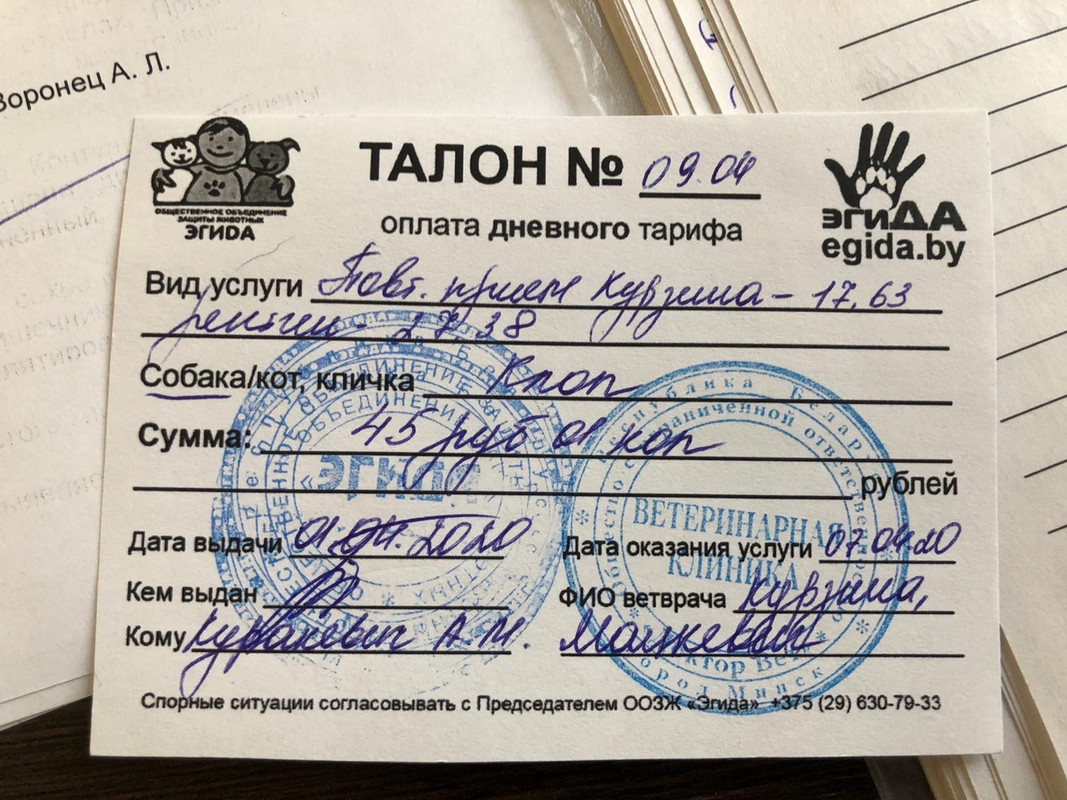 Воронец А. Л.
ОБЩЕСТВЕННОЕ ОБЪЕДИНЕНИЕ
ЗАЩИТЫ ЖИВОТНЫХ
ЭГИDA
ТАЛОН № 09.04
оплата дневного тарифа
эгиДА
egida.by
Вид услуги Повт. прием Курзина - 17,63
рентген - 27,38
Собака/кот, кличка Клоп
Сумма: 45 руб 01 коп
рублей
Дата выдачи 01.04.2020
Дата оказания услуги 07.04.20
Кем выдан
ФИО ветврача
Кому А.М.
Спорные ситуации согласовывать с Председателем ООЗЖ «Эгида» +375 (29) 630-79-33
ЭГИДА
ВЕТЕРИНАРНАЯ
КЛИНИКА